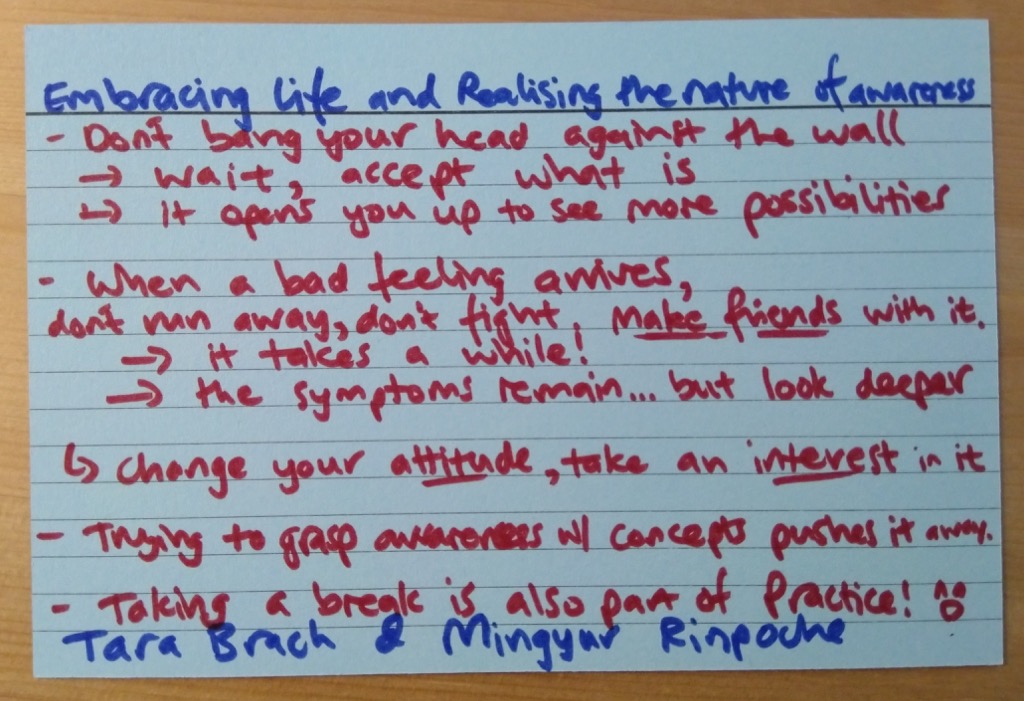 Embracing life and Realising the nature of awareness
- Don't bang your head against the wall
→ wait, accept what is
↳ it opens you up to see more possibilities
- When a bad feeling arrives,
don't run away, don't fight, make friends with it.
→ it takes a while!
→ the symptoms remain... but look deeper
↳ change your attitude, take an interest in it
- Trying to grasp awareness w/ concepts pushes it away.
- Taking a break is also part of Practice!
Tara Brach & Mingyur Rinpoche